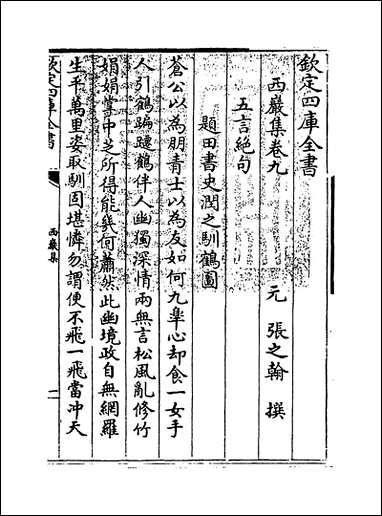 欽定四庫全書
西巖集卷九
元 張之翰 撰
五言絶句
題田書史潤之馴鶴圖
蒼公以為朋青士以為友如何九臯心却食一女手
人引鶴蹁躚鶴伴人幽獨深情兩無言松風亂修竹
娟娟掌中芝所得能幾何蕭然此幽境政自無網羅
生平萬里姿取馴固堪憐勿謂便不飛一飛當冲天
欽定四庫全書
西巖集